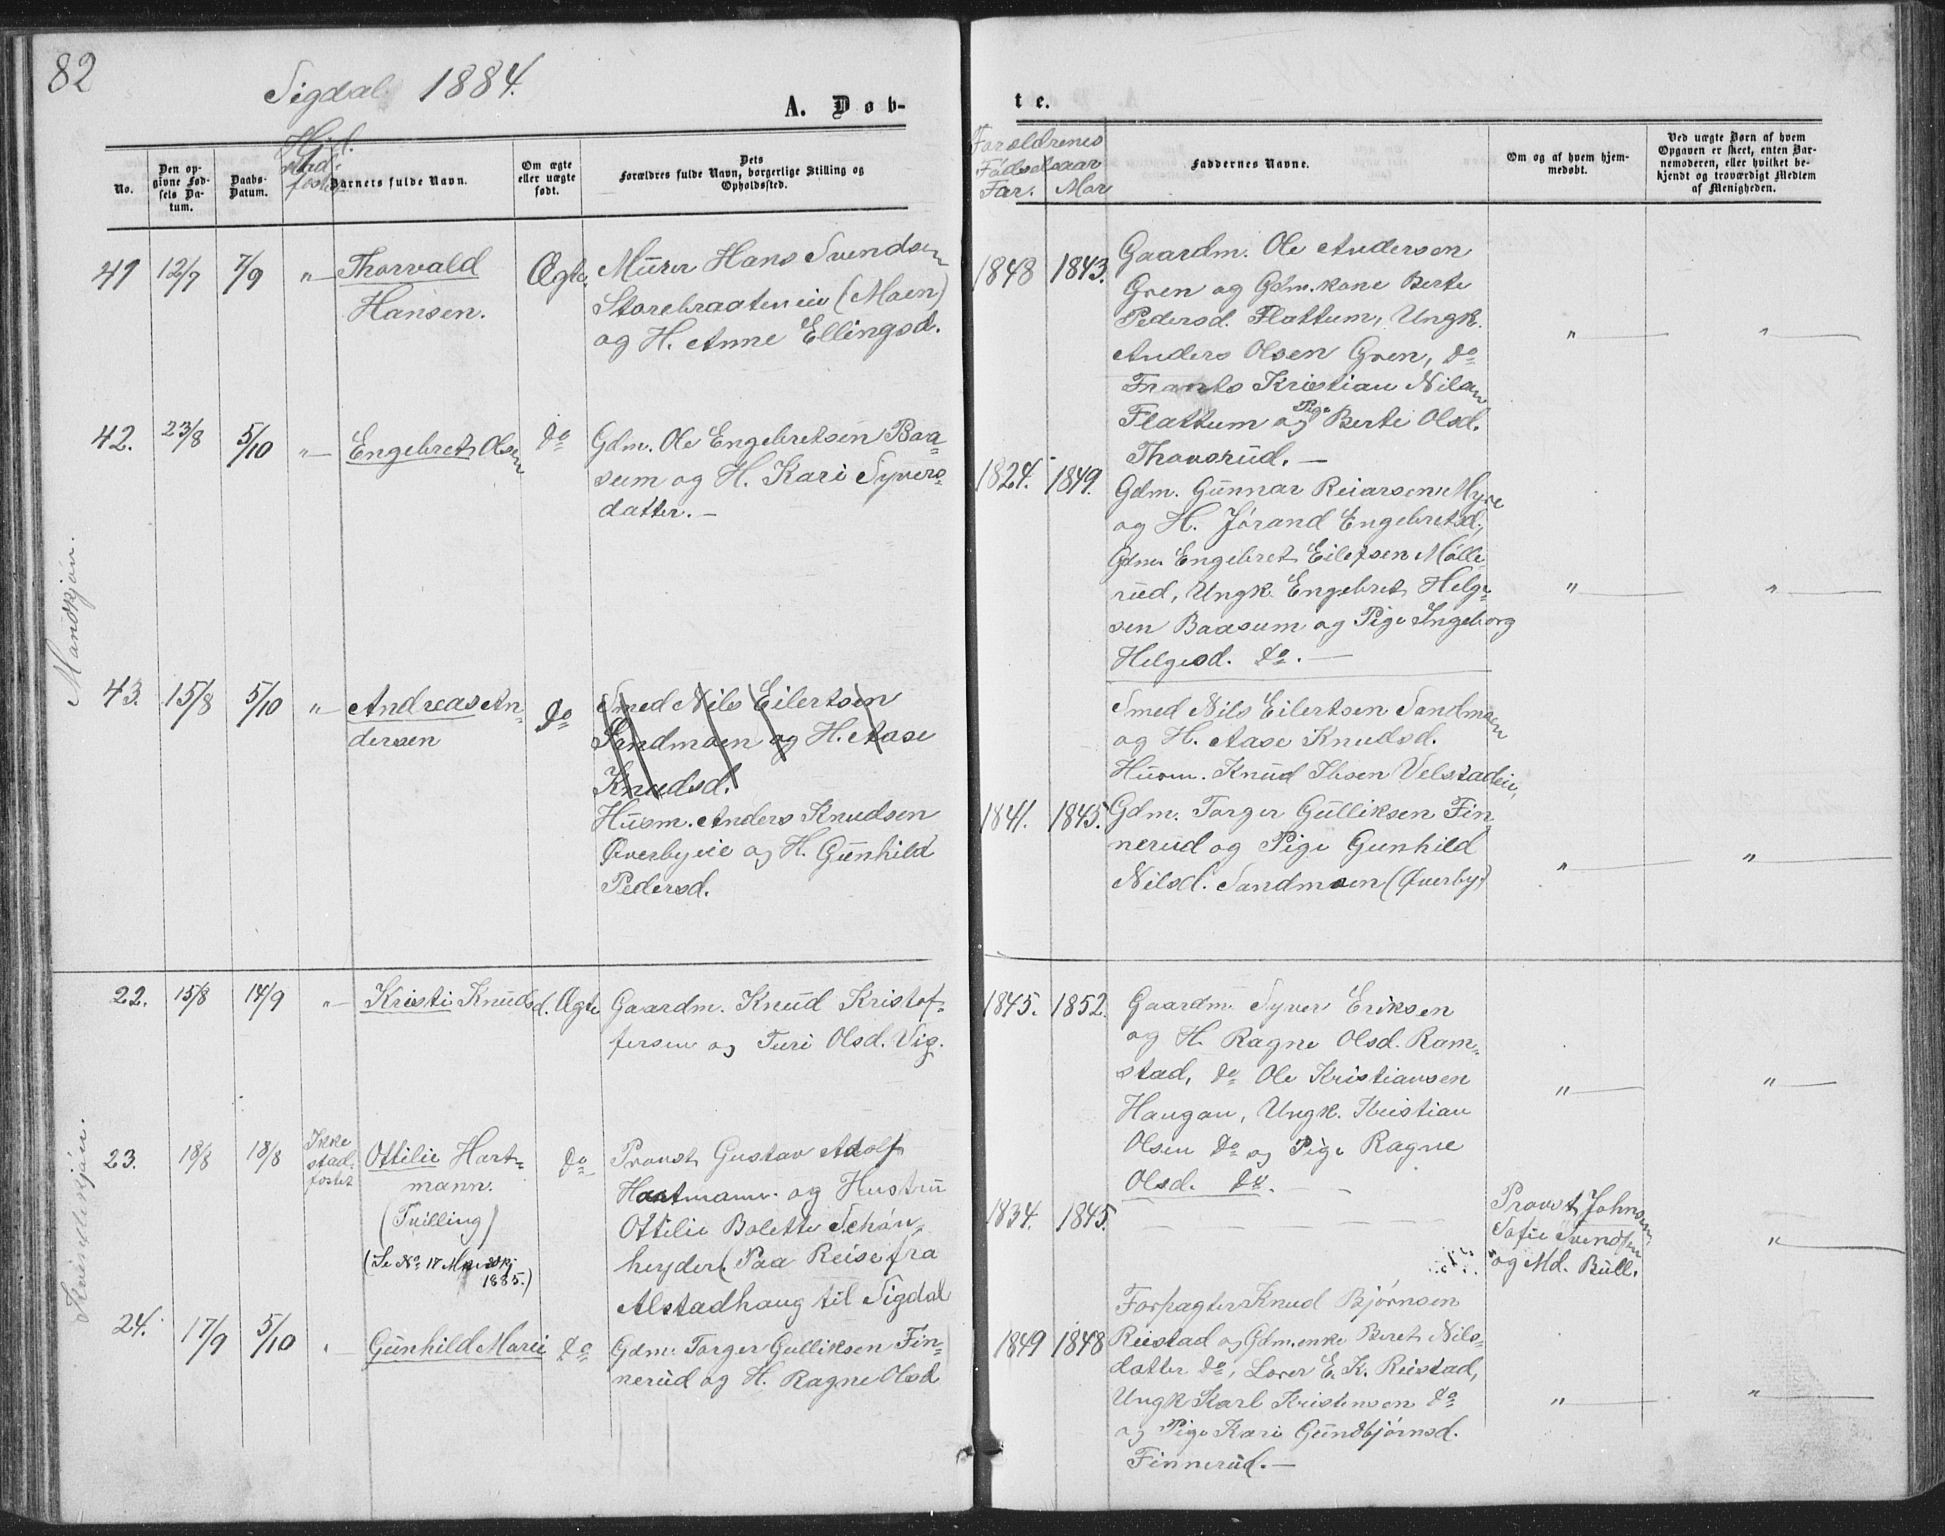 82
Sigdal 1884.
A. Døb-
te.
No.
Den op-
givne Fød-
sels Da-
tum.
Daabs-
Datum.
Barnets fulde Navn.
Om ægte
eller uægte
født.
Dets
Forældres fulde Navn, borgerlige Stilling og
Opholdssted.
Forældrenes
Fødselsaar
Far. Mor
Faddernes Navne.
Om og af hvem hjem-
medøbt.
Ved uægte Børn af hvem
Opgaven er skeet, enten Bar-
nemoderen, eller hvilket be-
kjendt og troværdigt Medlem
af Menigheden.
Mandkjøn.
41 12/7 7/9 " Thorvald
Hansen.
Ægte
Murer Hans Svendsen
Storebraateneie (Moen)
og H. Anne Ellingsd.
1848 1843.
Gaardm. Ole Andersen
Gren og Gdm.kone Berte
Pedersd. Flattum, Ungk.
Anders Olsen Gren, do
Frants Kristian Nilsen
Flattum og Pige Berte Olsd.
Thovsrud. —
" "
42. 23/8 5/10 " Engebret Olsen
do
Gdm. Ole Engebretsen Baa-
sum og H. Kari Syvers-
datter. —
1824. 1849.
Gdm. Gunnar Reiarsen Myre
og H. Jørand Engebretsd.,
Gdm. Engebret Eilefsen Mølle-
rud, Ungk. Engebret Helge-
sen Baasum og Pige Ingeborg
Helgesd. do. —
" "
43. 15/8 5/10 " Andreas An-
dersen
do
Smed Nils Eilertsen
Sandmoen og H. Aase
Knudsd.
Husm. Anders Knudsen
Øverbyeie og H. Gunhild
Pedersd.
1841. 1845.
Smed Nils Eilertsen Sandmoen
og H. Aase Knudsd.
Husm. Knud Ibsen Velstadeie,
Gdm. Torger Gulliksen Fin-
nerud og Pige Gunhild
Nilsd. Sandmoen (Øverby)
" "
Kvindekjøn.
22. 15/8 14/9 " Kristi Knudsd. Ægte
Gaardm. Knud Kristof-
fersen og Turi Olsd. Vig.
1845. 1852.
Gaardm. Syver Eriksen
og H. Ragne Olsd. Ram-
stad, do Ole Kristiansen
Haugan, Ungk. Kristian
Olsen do og Pige Ragne
Olsd. do. —
" "
23. 18/8 18/8 Ikke
stad-
fæstet
Ottilie Hart-
mann.
(Tvilling)
(Se No 17 Mandkj.
1885.)
do
Provst Gustav Adolf
Hartmann og Hustru
Ottilie Bolette Schøn-
heyder (Paa Reise fra
Alstadhaug til Sigdal
1834. 1845.
Provst Johnsen,
Sofie Svendsen
og Md. Bull.
"
24. 17/9 5/10 " Gunhild Marie do
Gdm. Torger Gulliksen Fin-
nerud og H. Ragne Olsd
1849 1848
Forpagter Knud Bjørnsen
Reistad og Gdm.enke Beret Nils-
datter do, Lærer E. K. Reistad,
Ungk Karl Kristensen do
og Pige Kari Gundbjørnsd.
Finnerud. —
" "